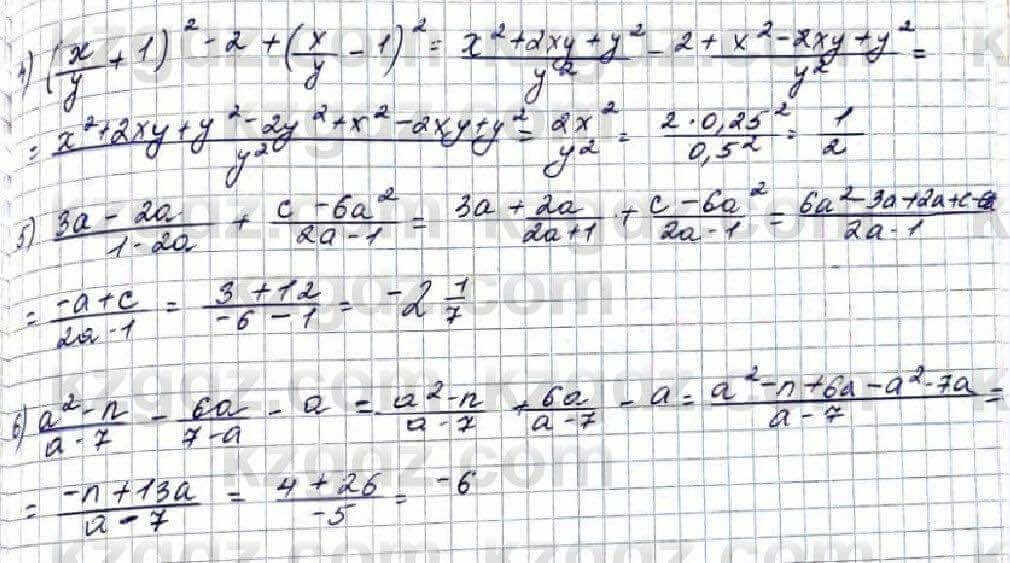 4) (x/y + 1)² - 2 + (x/y - 1)² = (x² + 2xy + y²)/y² - 2 + (x² - 2xy + y²)/y² =
= (x² + 2xy + y² - 2y² + x² - 2xy + y²)/y² = 2x²/y² = (2·0,25²)/0,5² = 1/2
5) (3a - 2a)/(1 - 2a) + (c - 6a²)/(2a - 1) = 3a + 2a/(2a + 1) + (c - 6a²)/(2a - 1) = (6a² - 3a + 2a + c - 6a)/(2a - 1)
= (-a + c)/(2a - 1) = (3 + 12)/(-6 - 1) = -2 1/7
6) (a² - n)/(a - 7) - 6a/(7 - a) - a = (a² - n)/(a - 7) + 6a/(a - 7) - a = (a² - n + 6a - a² - 7a)/(a - 7) =
= (-n + 13a)/(a - 7) = (4 + 26)/-5 = -6
kzgdz.com